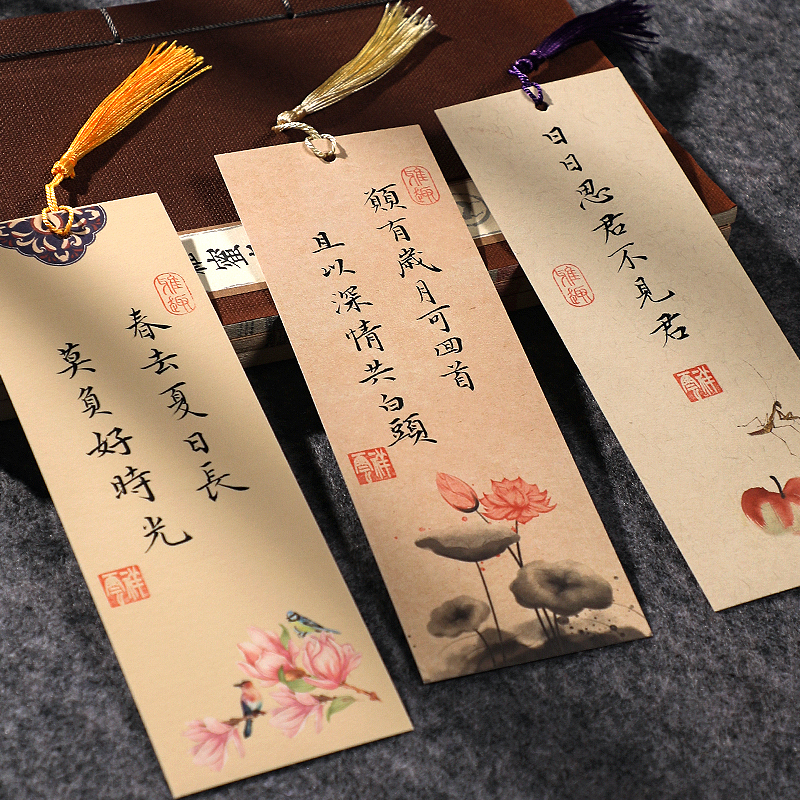 雅趣
春去夏日長
莫負好時光
雅趣
願有歲月可回首
且以深情共白頭
日日思君不見君
雅趣